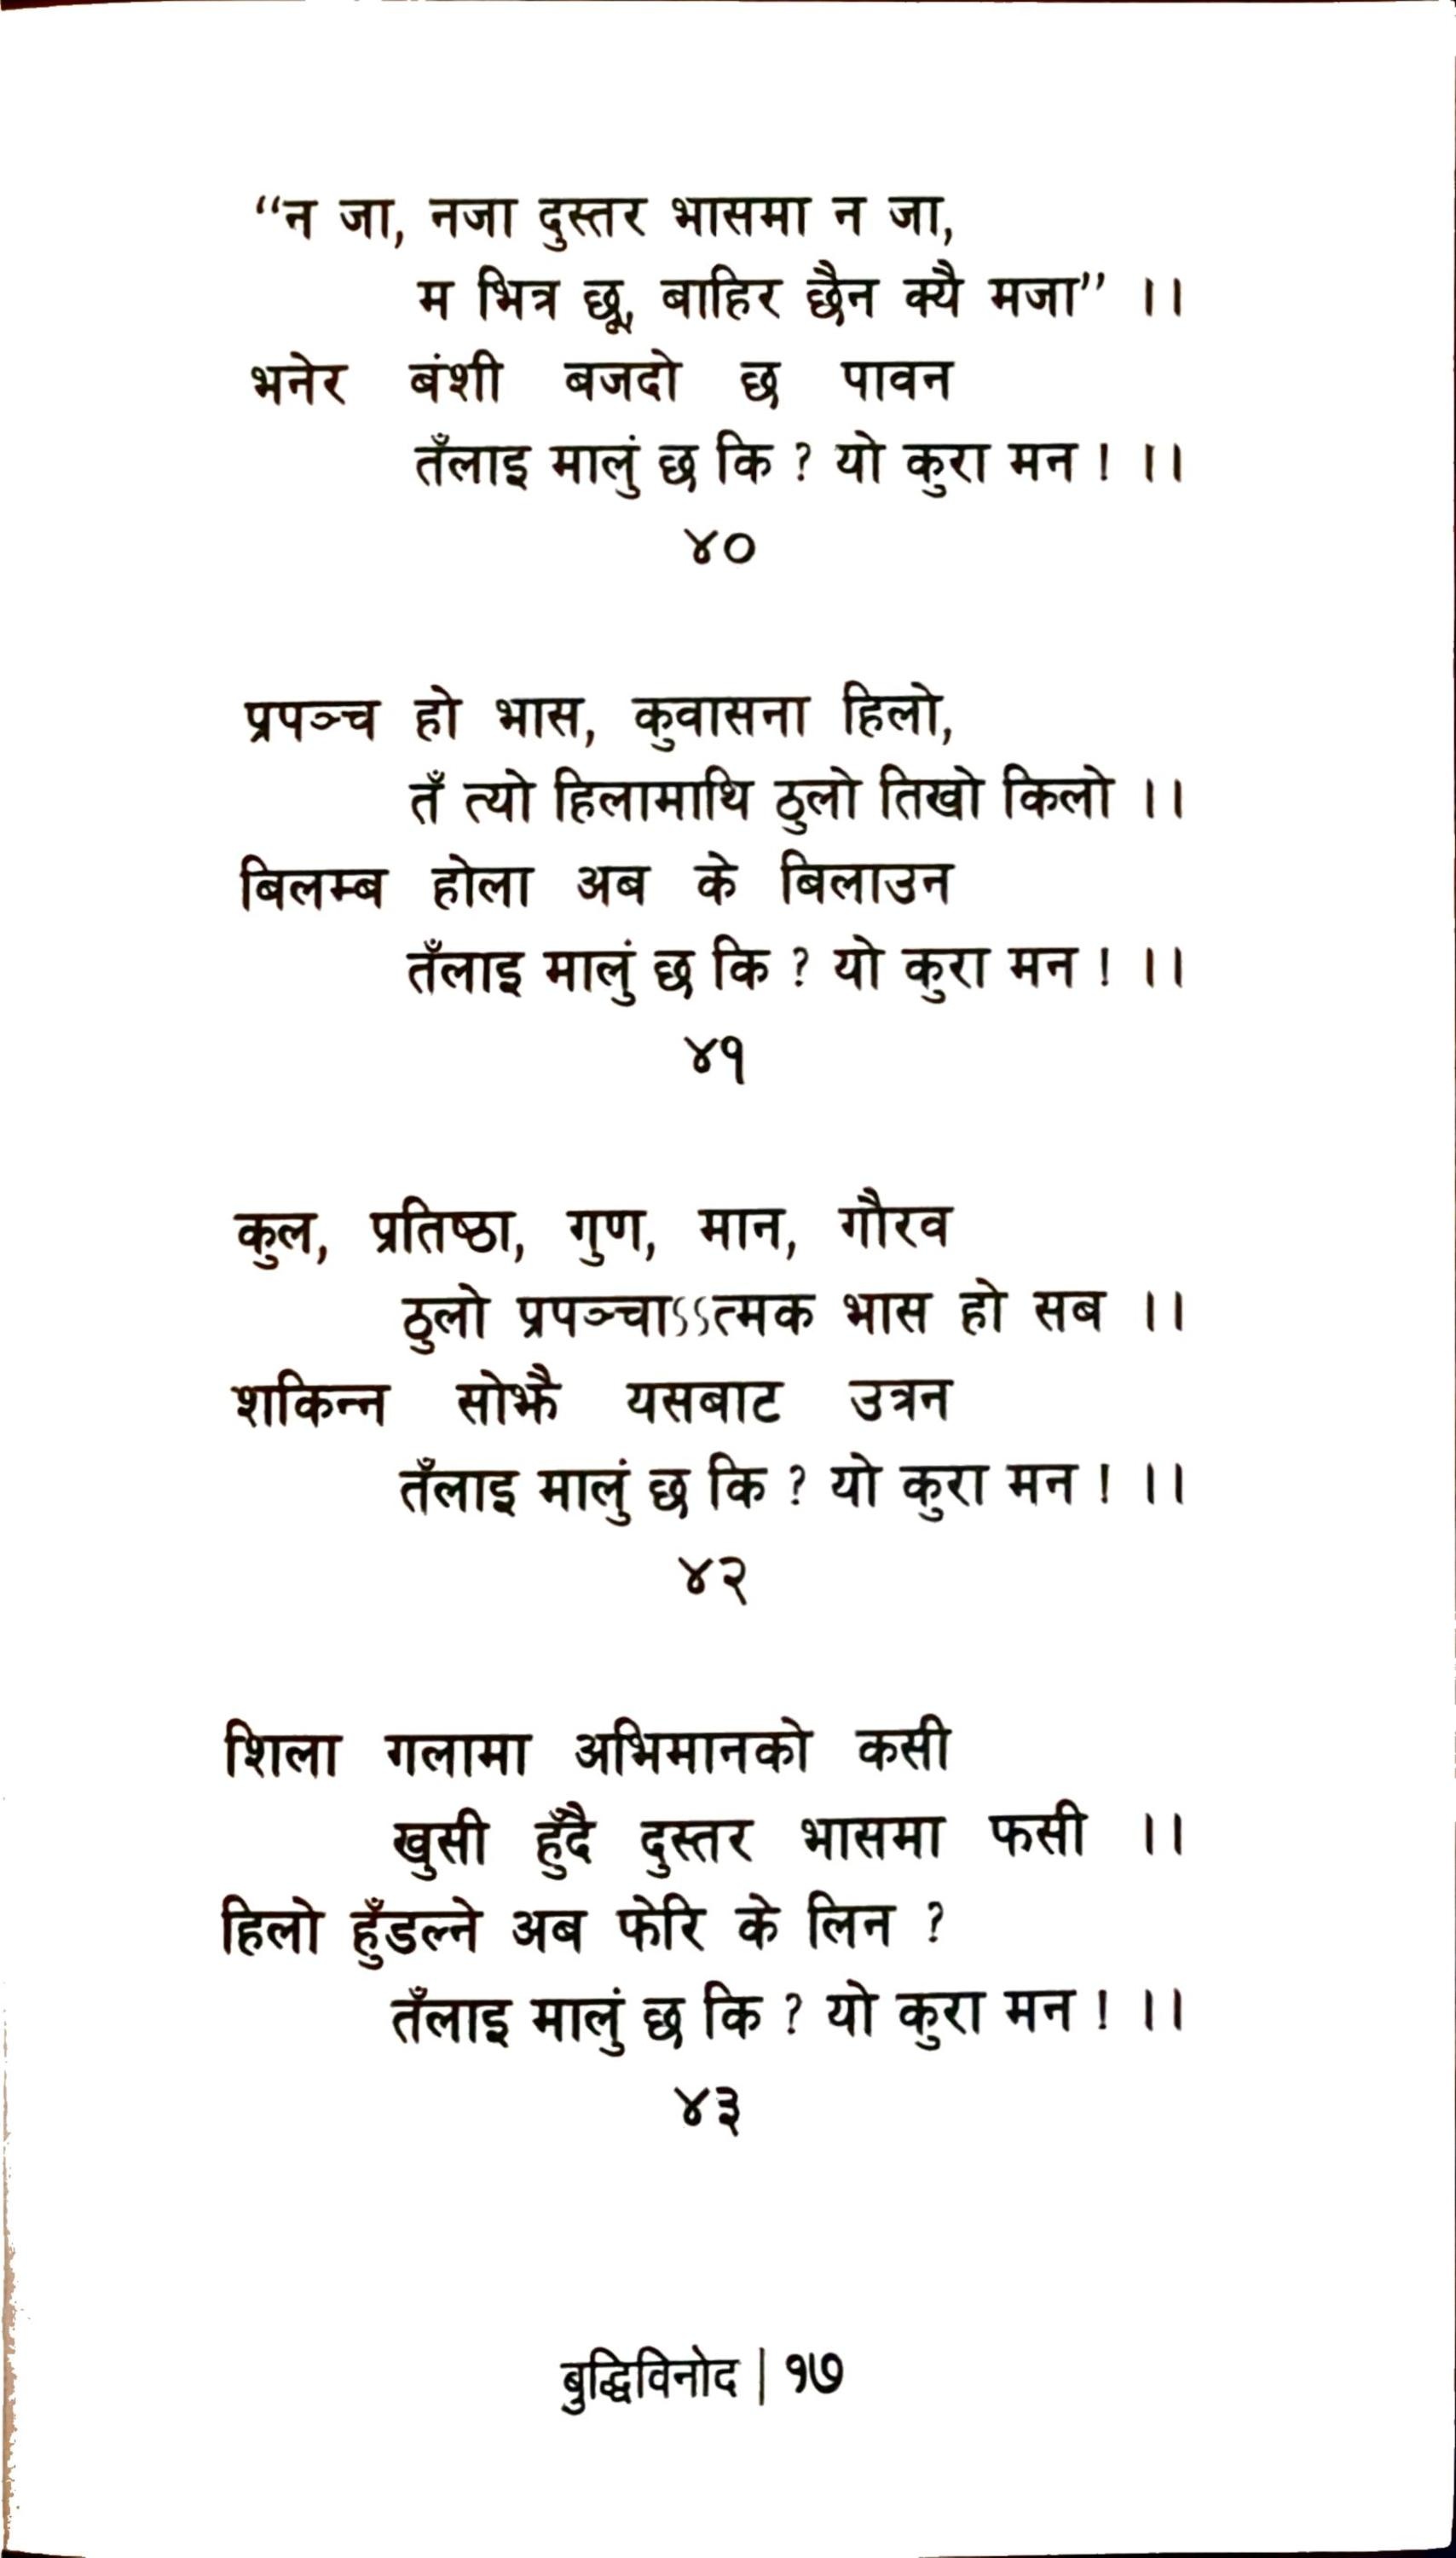 “न जा, नजा दुस्तर भासमा न जा,
म भित्र छू, बाहिर छैन क्यै मजा” ।।
भनेर बंशी बजदो छ पावन
तँलाइ मालुं छ कि ? यो कुरा मन ! ।।
४०
प्रपञ्च हो भास, कुवासना हिलो,
तँ त्यो हिलामाथि ठुलो तिखो किलो ।।
बिलम्ब होला अब के बिलाउन
तँलाइ मालुं छ कि ? यो कुरा मन ! ।।
४१
कुल, प्रतिष्ठा, गुण, मान, गौरव
ठुलो प्रपञ्चाऽऽत्मक भास हो सब ।।
शकिन्न सोझै यसबाट उत्रन
तँलाइ मालुं छ कि ? यो कुरा मन ! ।।
४२
शिला गलामा अभिमानको कसी
खुसी हुँदै दुस्तर भासमा फसी ।।
हिलो हुँडल्ने अब फेरि के लिन ?
तँलाइ मालुं छ कि ? यो कुरा मन ! ।।
४३
बुद्धिविनोद | १७